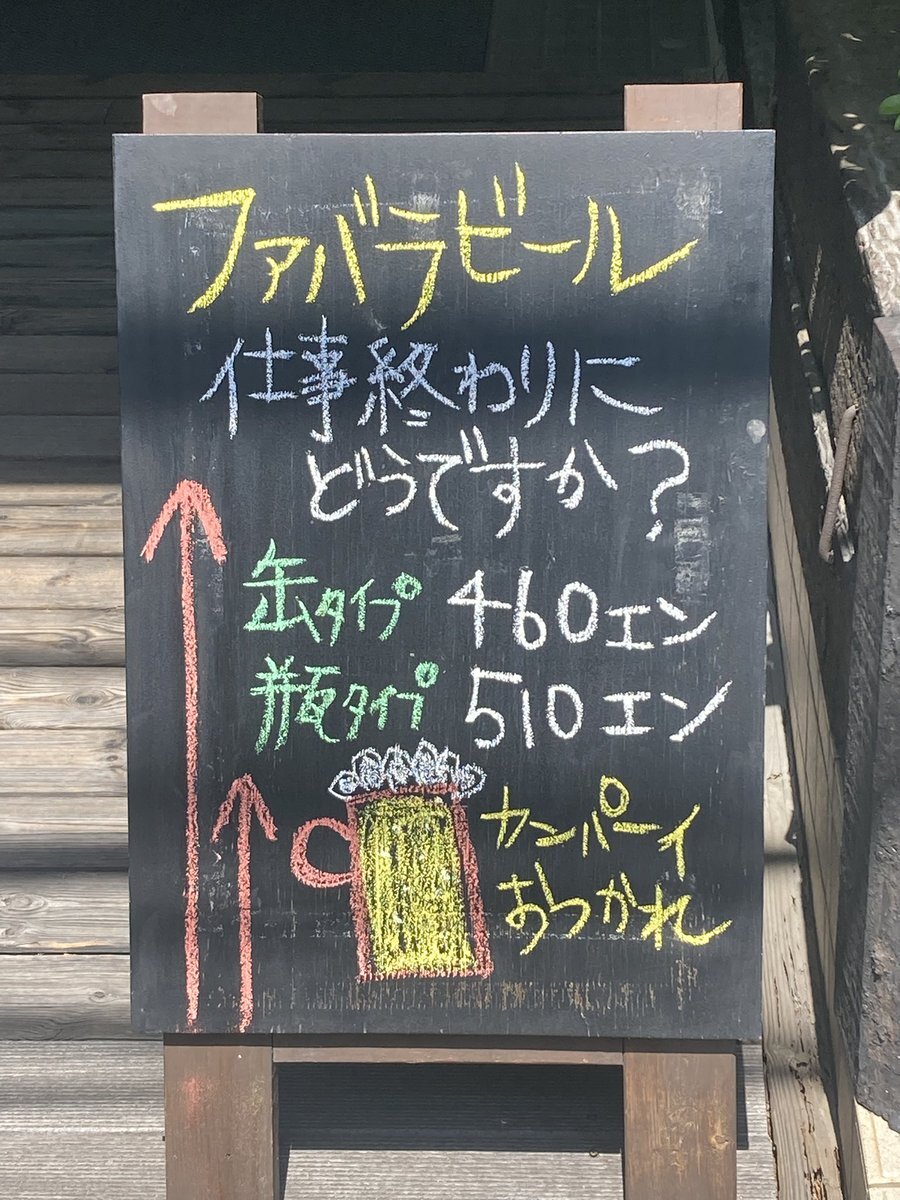 ファバラビール
仕事終わりに
どうですか?
缶タイプ 460エン
瓶タイプ 510エン
カンパーイ
おつかれ